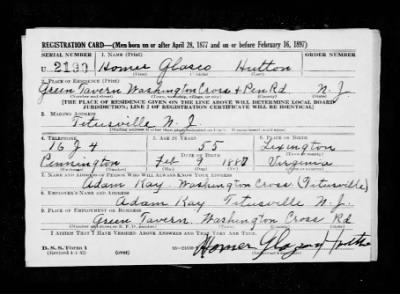 REGISTRATION CARD—(Men born on or after April 28, 1877 and on or before February 16, 1897)
SERIAL NUMBER 1. NAME (Print) ORDER NUMBER
U 2190 Homer Glasco Hutton
(First) (Middle) (Last)
2. PLACE OF RESIDENCE (Print)
Green Tavern Washington Cross & Pen Rd N. J.
(Number and street) (Town, township, village, or city) (County) (State)
[THE PLACE OF RESIDENCE GIVEN ON THE LINE ABOVE WILL DETERMINE LOCAL BOARD
JURISDICTION; LINE 2 OF REGISTRATION CERTIFICATE WILL BE IDENTICAL]
3. MAILING ADDRESS
Titusville N. J.
4. TELEPHONE 5. AGE IN YEARS 6. PLACE OF BIRTH
16 J 4 55 Lexington
DATE OF BIRTH
Pennington Feb 1887 Virginia
7. NAME AND ADDRESS OF PERSON WHO WILL ALWAYS KNOW YOUR ADDRESS
Adam Kay Washington Cross (Titusville)
8. EMPLOYER'S NAME AND ADDRESS
Adam Kay Titusville N. J.
9. PLACE OF EMPLOYMENT OR BUSINESS
Green Tavern Washington Cross Rd
I AFFIRM THAT I HAVE VERIFIED ABOVE ANSWERS AND THAT THEY ARE TRUE.
D. S. S. Form 1
(Revised 4-1-42) Homer